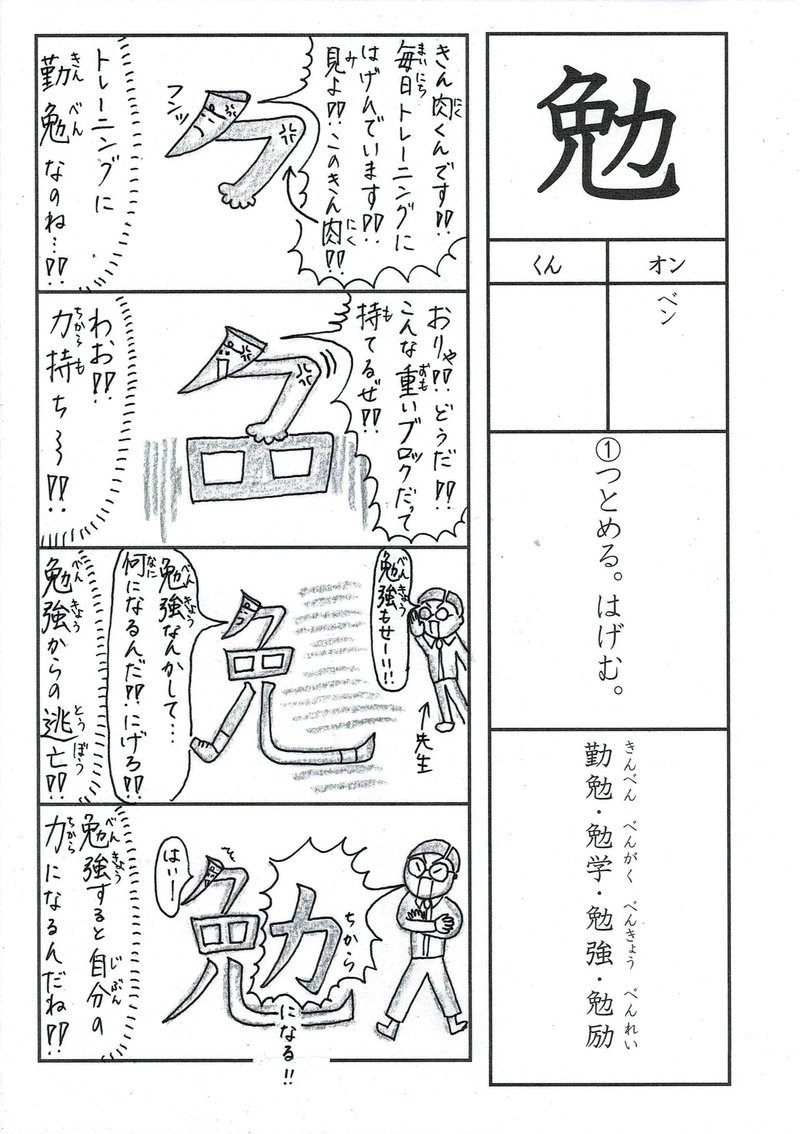 勉
オン
くん
ベン
①つとめる。はげむ。
きんべん べんがく べんきょう べんれい
勤勉・勉学・勉強・勉励
きん肉くんです!!
にく
毎日トレーニングに
まいにち
はげんでいます!!
見よ!!このきん肉!!
み
にく
フンッ
トレーニングに
勤勉なのね…!!
きんべん
おりゃ!!どうだ!!
こんな重いブロックだって
おも
持てるぜ!!
も
わお!!
力持ち〜!!
ちからも
勉強もせーい!!
べんきょう
先生
勉強なんかして…
べんきょう
何になるんだ!!にげる!!
なに
勉強からの逃亡!!
べんきょう
とうぼう
力
ちから
になる!!
はいー
勉強すると自分の
べんきょう
じぶん
力になるんだね!!
ちから